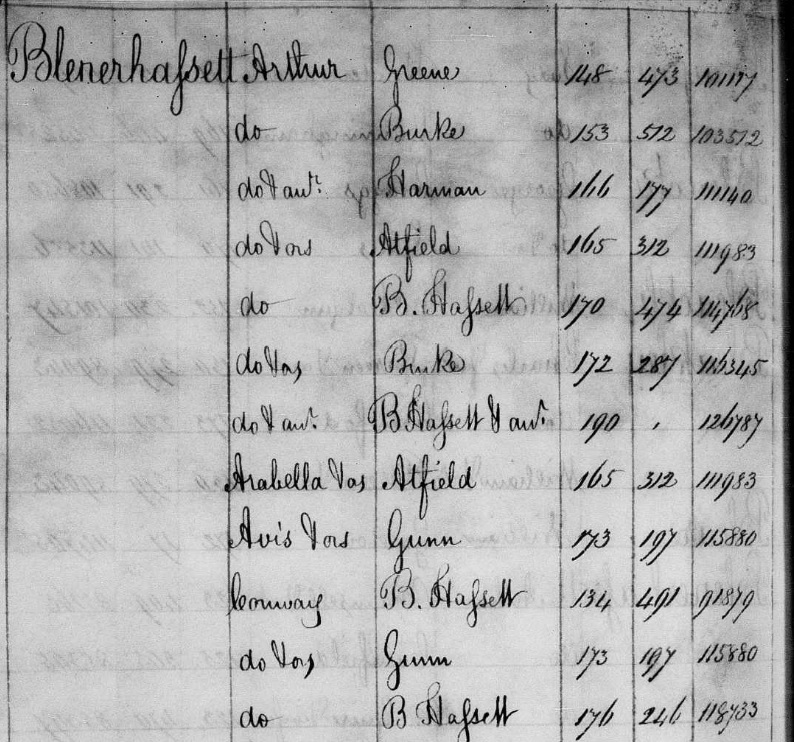 Blenerhassett Arthur Greene 148 473 101177
do Burke 153 512 103572
do & anr. Harman 166 177 111140
do & ors Atfield 165 312 111983
do B. Hassett 170 474 114768
do & as Burke 172 287 116345
do & anr. B Hassett & anr. 190 , 126787
Arabella & as Atfield 165 312 111983
Avis & ors Gunn 173 197 115880
Conway B. Hassett 134 491 91879
do & ors Gunn 173 197 115880
do B Hassett 176 246 118733